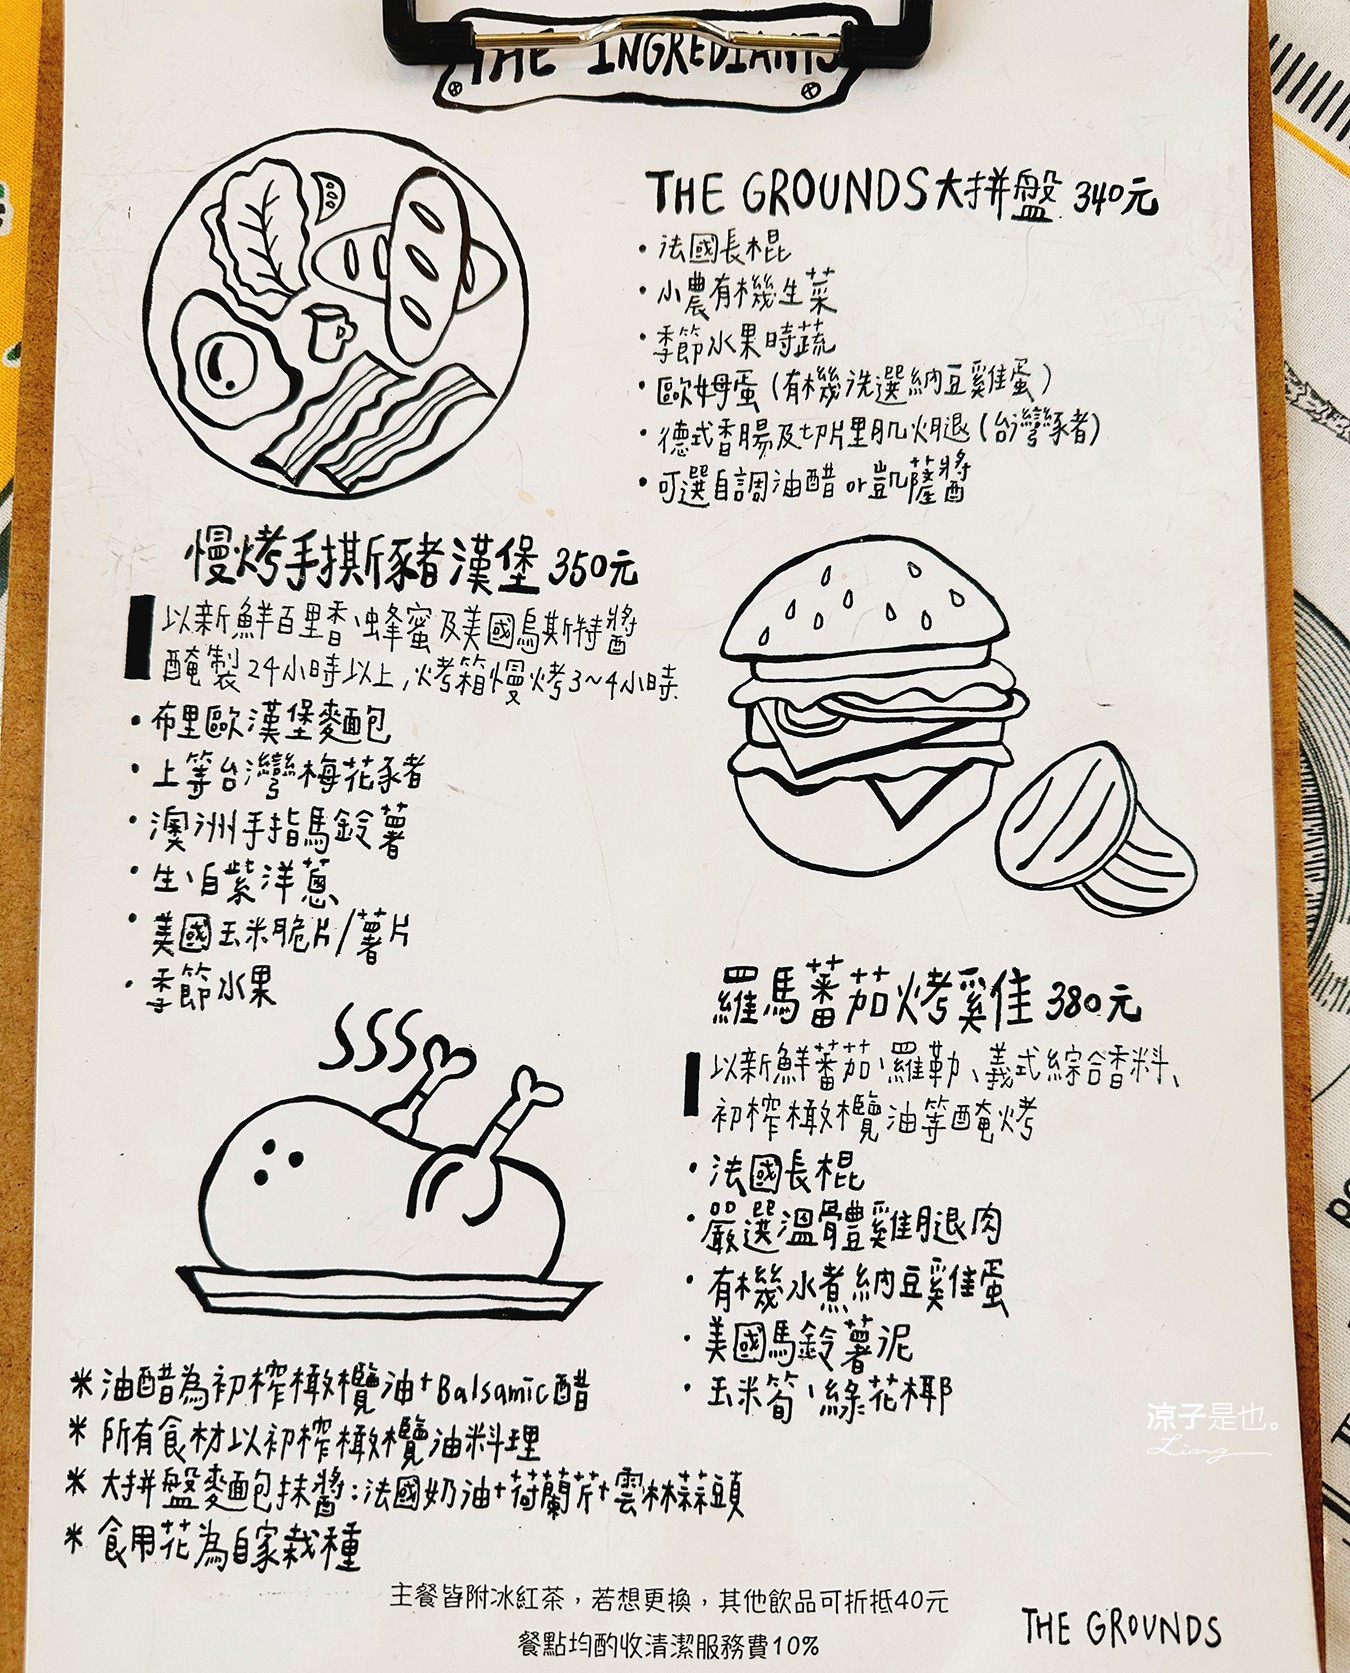 THE INGREDIANTS
THE GROUNDS大拼盤 340元
・法國長棍
・小農有機生菜
・季節水果時蔬
・歐姆蛋(有機洗選納豆雞蛋)
・德式香腸及切片里肌火腿(台灣豬)
・可選自調油醋 or 凱薩醬
慢烤手撕豬漢堡 350元
以新鮮百里香、蜂蜜及美國烏斯特醬
醃製24小時以上,烤箱慢烤3~4小時.
・布里歐漢堡麵包
・上等台灣梅花豬
・澳洲手指馬鈴薯
・生、白紫洋蔥
・美國玉米脆片/薯片
・季節水果
羅馬蕃茄烤雞 380元
以新鮮蕃茄、羅勒、義式綜合香料、
初榨橄欖油等醃烤
・法國長棍
・嚴選溫體雞腿肉
・有機水煮納豆雞蛋
・美國馬鈴薯泥
・玉米筍、綠花椰
涼子是也。
Liang
＊油醋為初榨橄欖油+Balsamic醋
＊所有食材以初榨橄欖油料理
＊大拼盤麵包抹醬:法國奶油+荷蘭芹+雲林蒜頭
＊食用花為自家栽種
主餐皆附冰紅茶，若想更換，其他飲品可折抵40元
餐點均酌收清潔服務費10%
THE GROUNDS